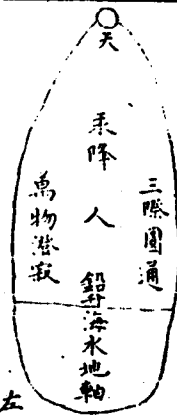 天
三際圓通
汞降人鉛升海水地軸
萬物潛寂
左